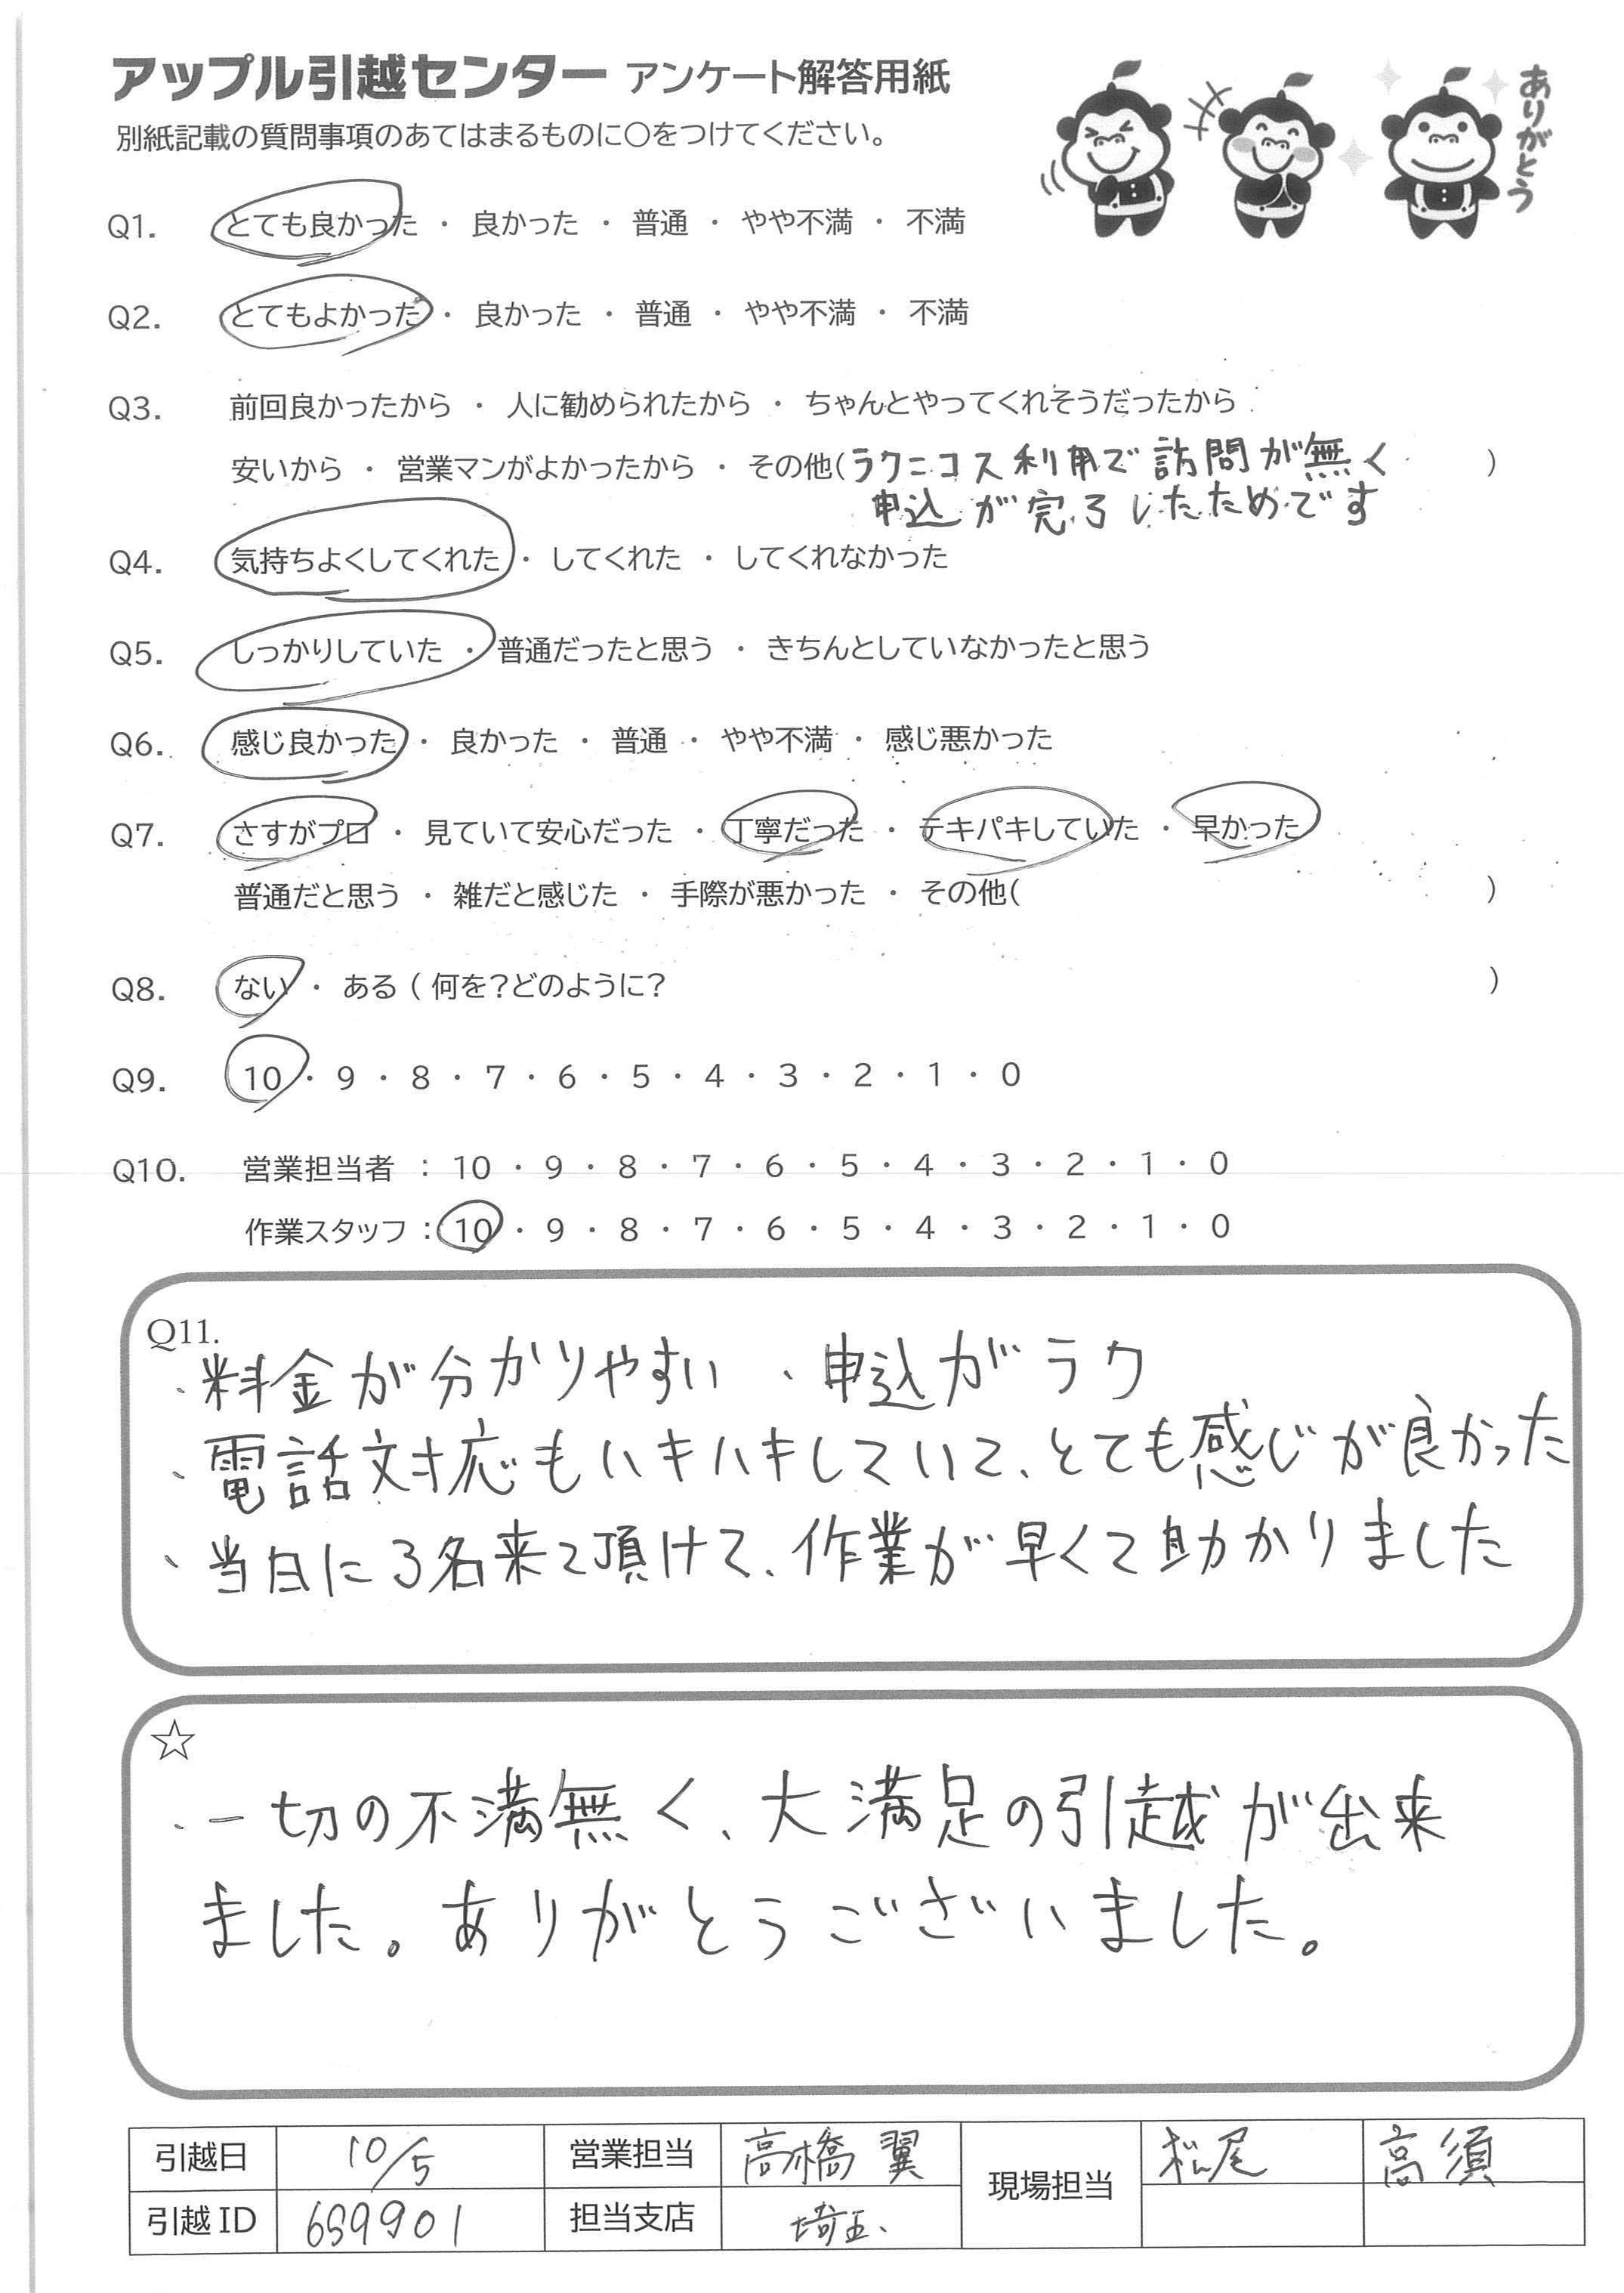 アップル引越センター アンケート解答用紙
ありがとう
別紙記載の質問事項のあてはまるものに〇をつけてください。
Q1. とても良かった ・ 良かった ・ 普通 ・ やや不満 ・ 不満
Q2. とてもよかった ・ 良かった ・ 普通 ・ やや不満 ・ 不満
Q3. 前回良かったから ・ 人に勧められたから ・ ちゃんとやってくれそうだったから
安いから ・ 営業マンがよかったから ・ その他(ラクニコス利用で訪問が無く )
申込が完了したためです
Q4. 気持ちよくしてくれた ・ してくれた ・ してくれなかった
Q5. しっかりしていた ・ 普通だったと思う ・ きちんとしていなかったと思う
Q6. 感じ良かった ・ 良かった ・ 普通 ・ やや不満 ・ 感じ悪かった
Q7. さすがプロ ・ 見ていて安心だった ・ 丁寧だった ・ テキパキしていた ・ 早かった
普通だと思う ・ 雑だと感じた ・ 手際が悪かった ・ その他( )
Q8. ない ・ ある ( 何を?どのように? )
Q9. 10 ・ 9 ・ 8 ・ 7 ・ 6 ・ 5 ・ 4 ・ 3 ・ 2 ・ 1 ・ 0
Q10. 営業担当者 : 10 ・ 9 ・ 8 ・ 7 ・ 6 ・ 5 ・ 4 ・ 3 ・ 2 ・ 1 ・ 0
作業スタッフ : 10 ・ 9 ・ 8 ・ 7 ・ 6 ・ 5 ・ 4 ・ 3 ・ 2 ・ 1 ・ 0
Q11.
、料金が分かりやすい 、申込がラク
、電話対応もハキハキしていて、とても感じが良かった
、当日に3名来て頂けて、作業が早くて助かりました
☆
、一切の不満無く、大満足の引越が出来
ました。ありがとうございました。
引越日 10/5 営業担当 高橋 翼 現場担当 松尾 高須
引越ID 659901 担当支店 埼玉